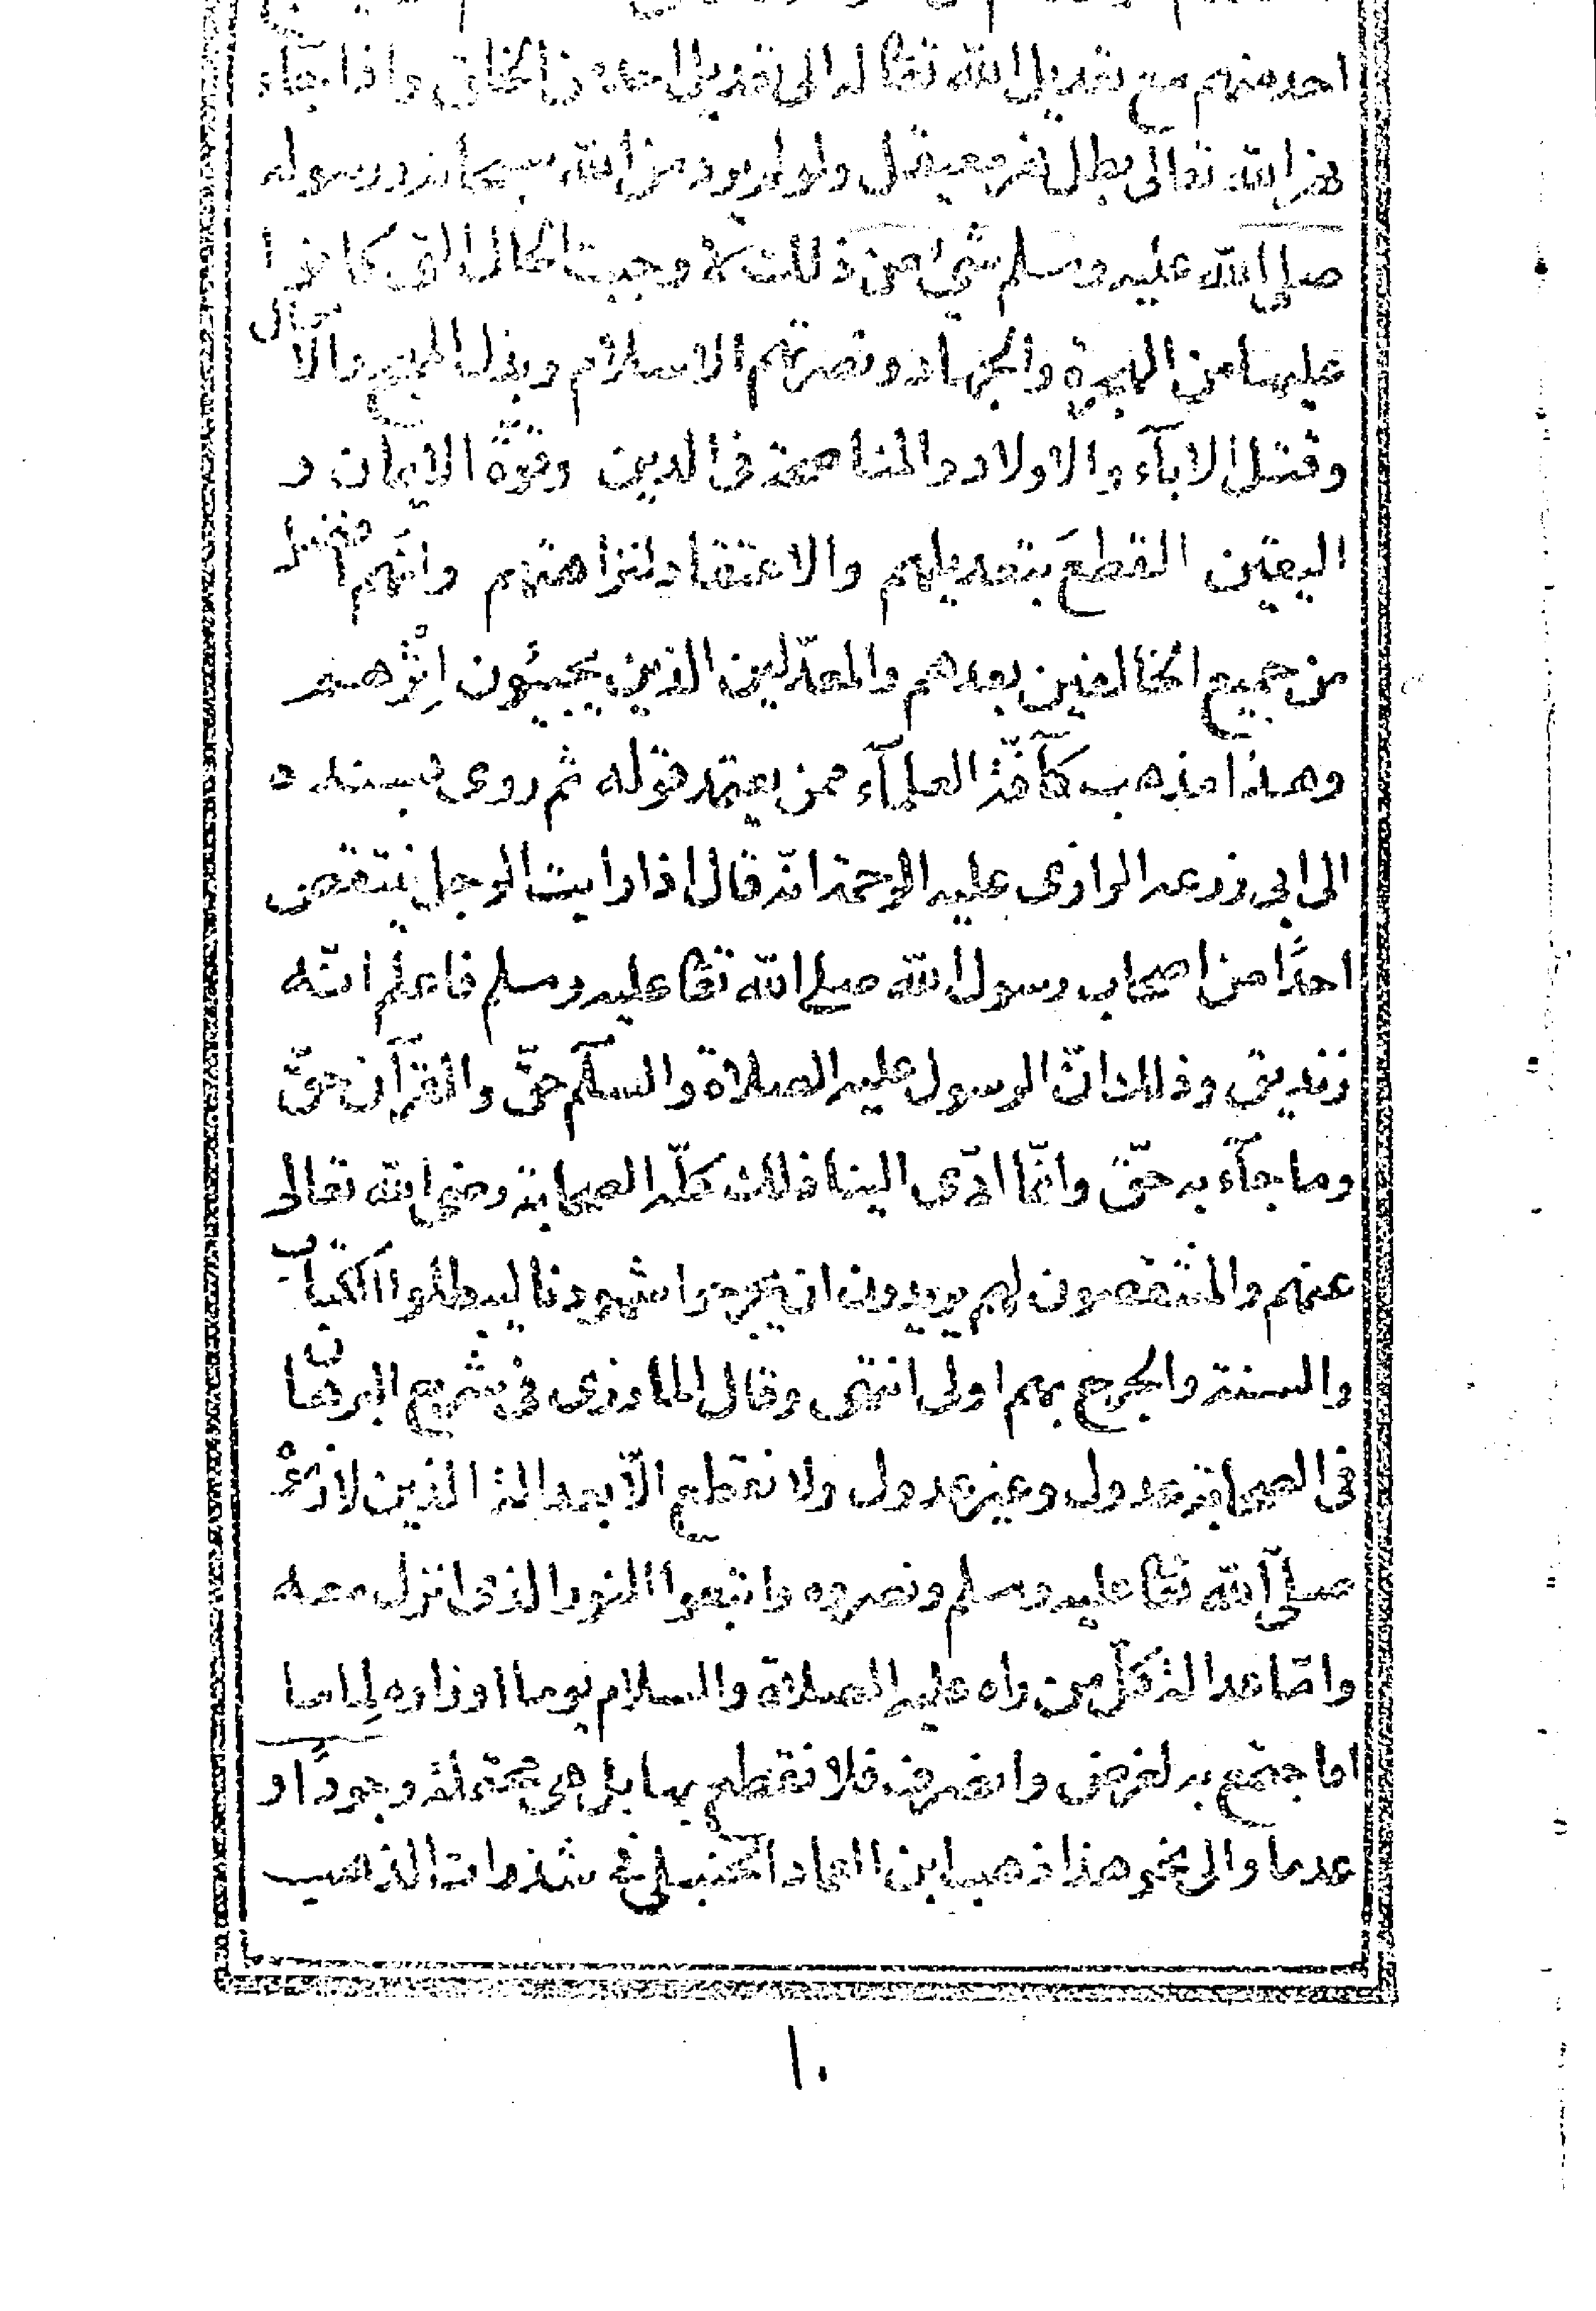 احد منهم مع تعديل الله تعا له الى تعديل احد من الخلق واذا جاء
نهر الله تعالى بطل نهر معقل ولو لم يرد من الله سبحانه ورسوله
صلى الله عليه وسلم شئ من ذلك لاوجبت الحال التى كانوا
عليها من الهجرة والجهاد ونصرتهم الاسلام وبذل المهج والاموال
وقتل الابآء والاولاد والمناصحة فى الدين وقوّة الايمان و
اليقين القطعَ بتعديلهم والاعتقاد لنزاهتهم وانّهم افضل
من جميع الخالفين بعدهم والمعدّلين الذين يجيئون اِثْرهم
وهذا مذهب كآفّة العلمآء ممن يعتمد قوله ثم روى بسنده
الى ابى زرعه الرازى عليه الرحمة انّه قال اذا رايت الرجل ينتقص
احدًا من اصحاب رسول الله صلى الله تعا عليه وسلم فاعلم انّه
زنديق وذلك انّ الرسول عليه الصلاة والسلآم حقّ والقرآن حقّ
وما جآء به حقّ وانّما ادّى الينا ذلك كلّه الصحابة رضى الله تعالى
عنهم والمنتقصون لهم يريدون ان يجرحوا شهودنا ليبطلوا الكتاب
والسنة والجرح بهم اولى انتهى وقال المازرى فى شرح البرهان
فى الصحابة عدول وغير عدول ولا نقطع الّا بعدالة الذين لازموه
صلّى الله تعا عليه وسلم ونصروه واتبعوا النور الذى انزل معه
وامّا عدالة كلّ من راه عليه الصلاة والسلام يوما او زاره لِماما
او اجتمع به لغرض وانصرف فلا نقطع بها بل هى محتملة وجودًا و
عدما والى نحو هذا ذهب ابن العماد الحنبلى فى شذرات الذهب
١٠